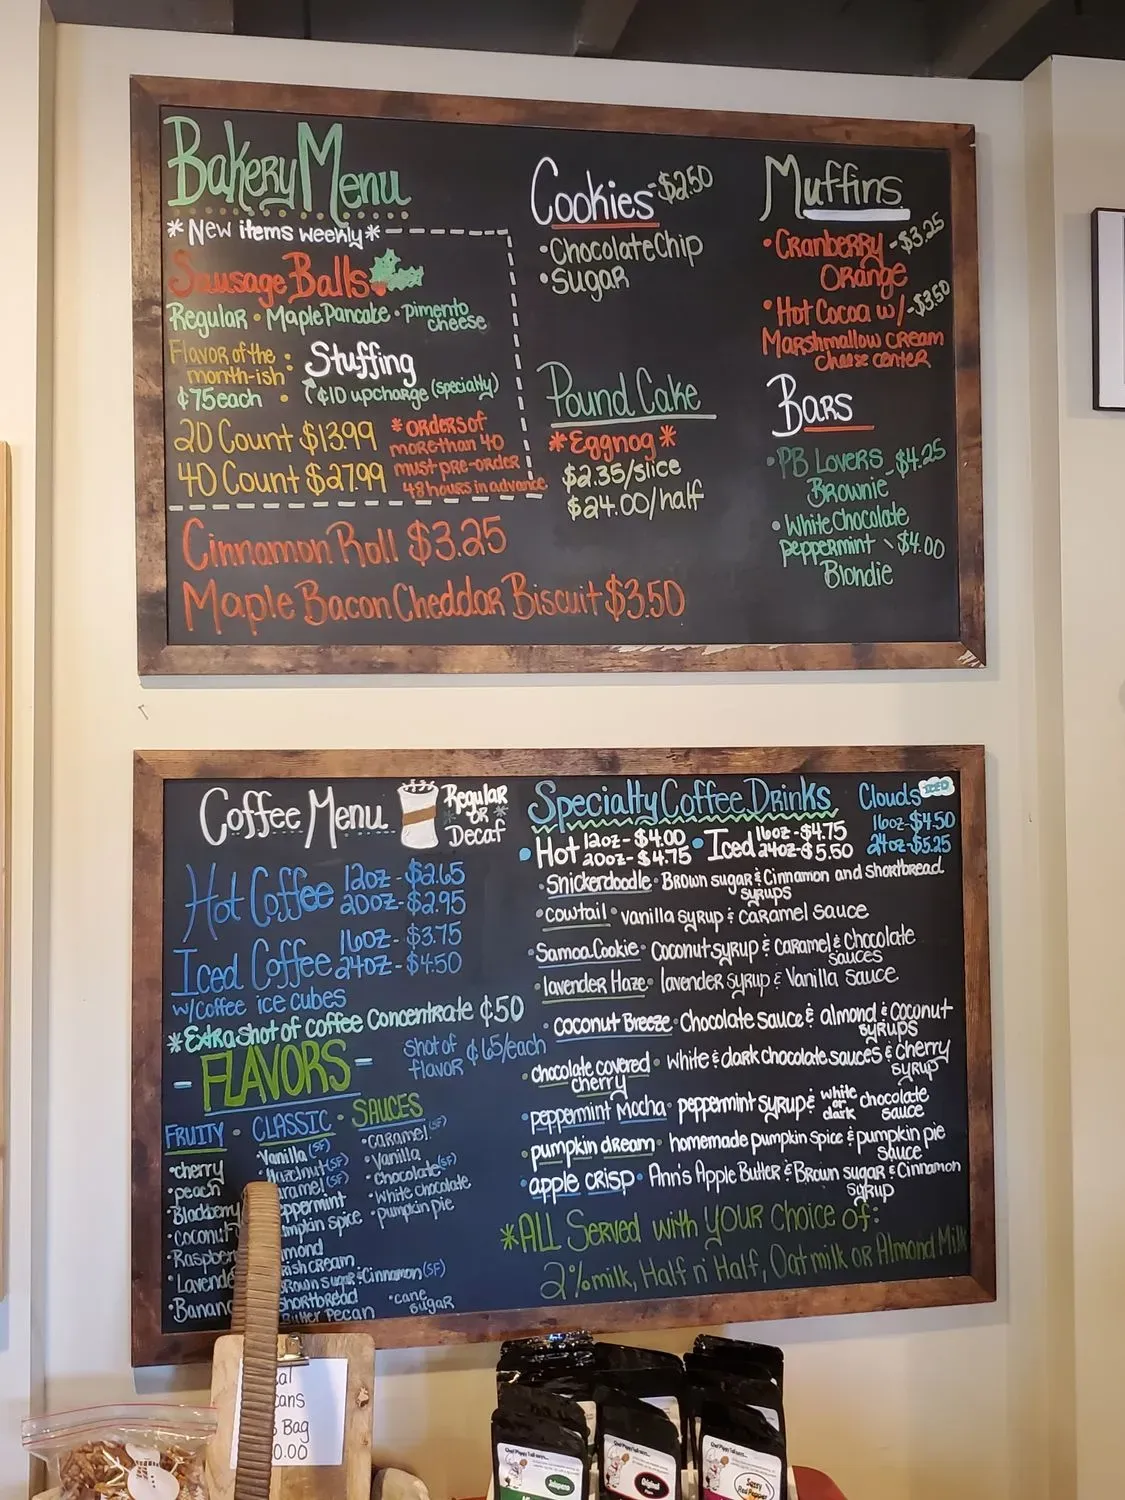 Bakery Menu
*New items weekly*
Sausage Balls
Regular • Maple Pancake • pimento
cheese
Flavor of the
month-ish :
Stuffing
¢75 each
¢10 upcharge (specialty)
20 Count $13.99
40 Count $27.99
*orders of
more than 40
must pre-order
48 hours in advance
Cinnamon Roll $3.25
Maple Bacon Cheddar Biscuit $3.50
Cookies - $2.50
• Chocolate Chip
• Sugar
Pound Cake
*Eggnog*
$2.35/slice
$24.00/half
Muffins
• Cranberry - $3.25
Orange
• Hot Cocoa w/ - $3.50
Marshmallow cream
cheese center
Bars
• PB Lovers - $4.25
Brownie
• White Chocolate
peppermint - $4.00
Blondie
Coffee Menu
Regular
OR
Decaf
Hot Coffee 12oz - $2.65
20oz - $2.95
Iced Coffee 16oz - $3.75
24oz - $4.50
w/coffee ice cubes
*Extra shot of coffee concentrate ¢50
- FLAVORS -
shot of
flavor ¢65/each
FRUITY • CLASSIC • SAUCES
• cherry
• peach
• Blackberry
• coconut
• Lavende
• Banan
• Vanilla (SF)
• Hazelnut (SF)
aramel (SF)
eppermint
mpkin spice
mond
rish cream
Brown sugar & Cinnamon (SF)
Shortbread
Butter Pecan
• caramel (SF)
• Vanilla
• Chocolate (SF)
• White chocolate
• pumpkin pie
• cane
sugar
Specialty Coffee Drinks
• Hot 12oz - $4.00
20oz - $4.75
• Iced 16oz - $4.75
24oz - $5.50
Clouds ICED
16oz - $4.50
24oz - $5.25
• Snickerdoodle • Brown sugar & Cinnamon and shortbread
syrups
• cowtail • vanilla syrup & caramel sauce
• Samoa Cookie • Coconut syrup & caramel & chocolate
sauces
• lavender Haze • lavender syrup & Vanilla sauce
• coconut Breeze • Chocolate sauce & almond & coconut
syrups
• chocolate covered
cherry • white & dark chocolate sauces & cherry
syrup
• peppermint Mocha • peppermint syrup & white
or
dark chocolate
sauce
• pumpkin dream • homemade pumpkin spice & pumpkin pie
sauce
• apple crisp • Ann's Apple Butter & Brown sugar & Cinnamon
syrup
*ALL Served with your choice of:
2% milk, Half n' Half, Oat milk or Almond Milk
Bag
0.00
Jalapeno
Original
Sassy
Red Pepper